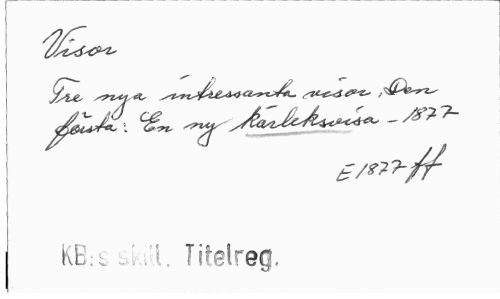 Visor
Tre nya intressanta visor. Den
första: En ny kärleksvisa - 1877
E 1877 ff
KB:s skill. Titelreg.